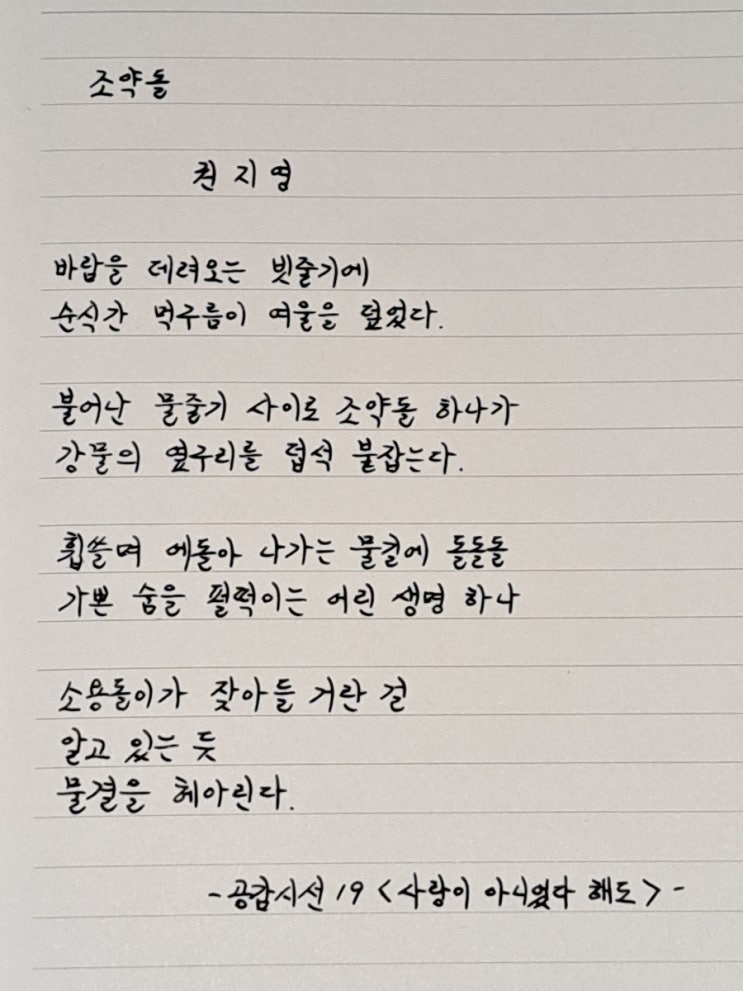 조약돌
권지영
바람을 데려오는 빗줄기에
순식간 먹구름이 여울을 덮었다.
불어난 물줄기 사이로 조약돌 하나가
강물의 옆구리를 덥석 붙잡는다.
휩쓸며 에돌아 나가는 물결에 돌돌돌
가쁜 숨을 펄떡이는 어린 생명 하나
소용돌이가 잦아들 거란 걸
알고 있는 듯
물결을 헤아린다.
-공감시선 19 <사랑이 아니었다 해도> -